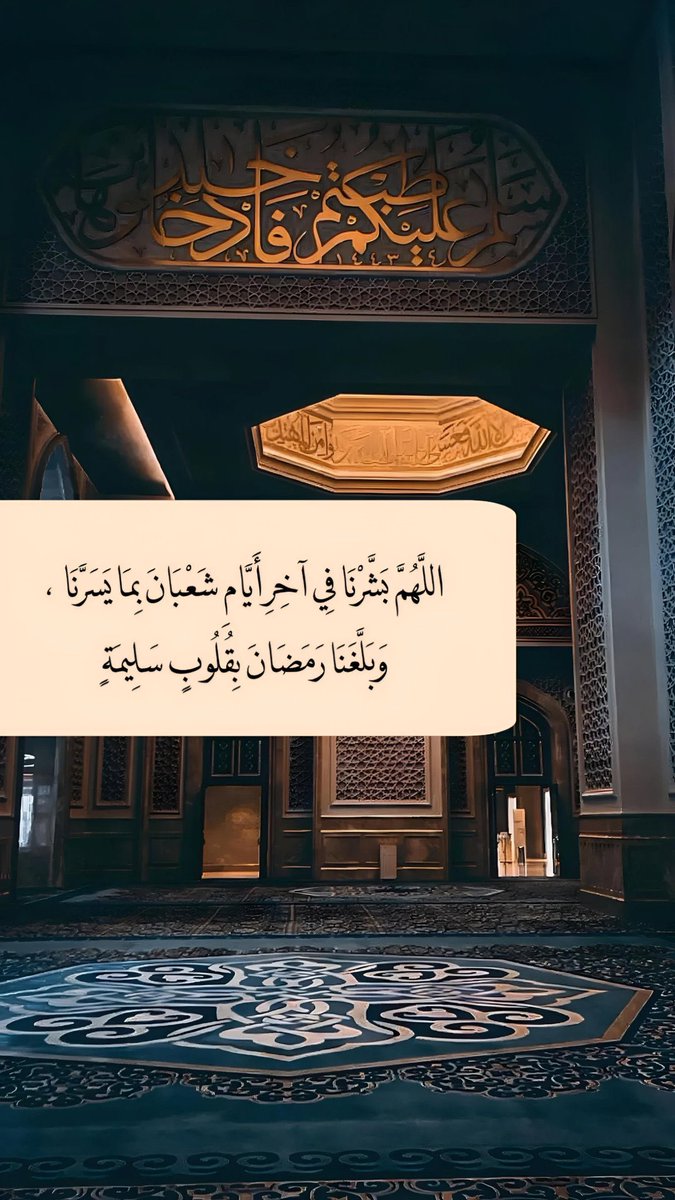 سلام عليكم طبتم فادخلوها خالدين
١٤٤٣
اللَّهُمَّ بَشَّرْنَا فِي آخِرِ أَيَّام شَعْبَانَ بِمَا يَسَرَّنَا ،
وَبَلَّغَنَا رَمَضَانَ بِقُلُوبٍ سَلِيمَةٍ